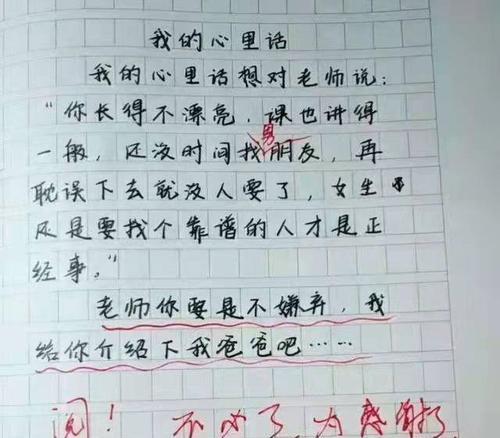 我的心里话
我的心里话想对老师说：
“你长得不漂亮，课也讲得
一般，还没时间找男朋友，再
耽误下去就没人要了，女生
还是要找个靠谱的人才是正
经事。”
老师你要是不嫌弃，我
给你介绍下我爸爸吧……
阅！ 不必了，太感谢了